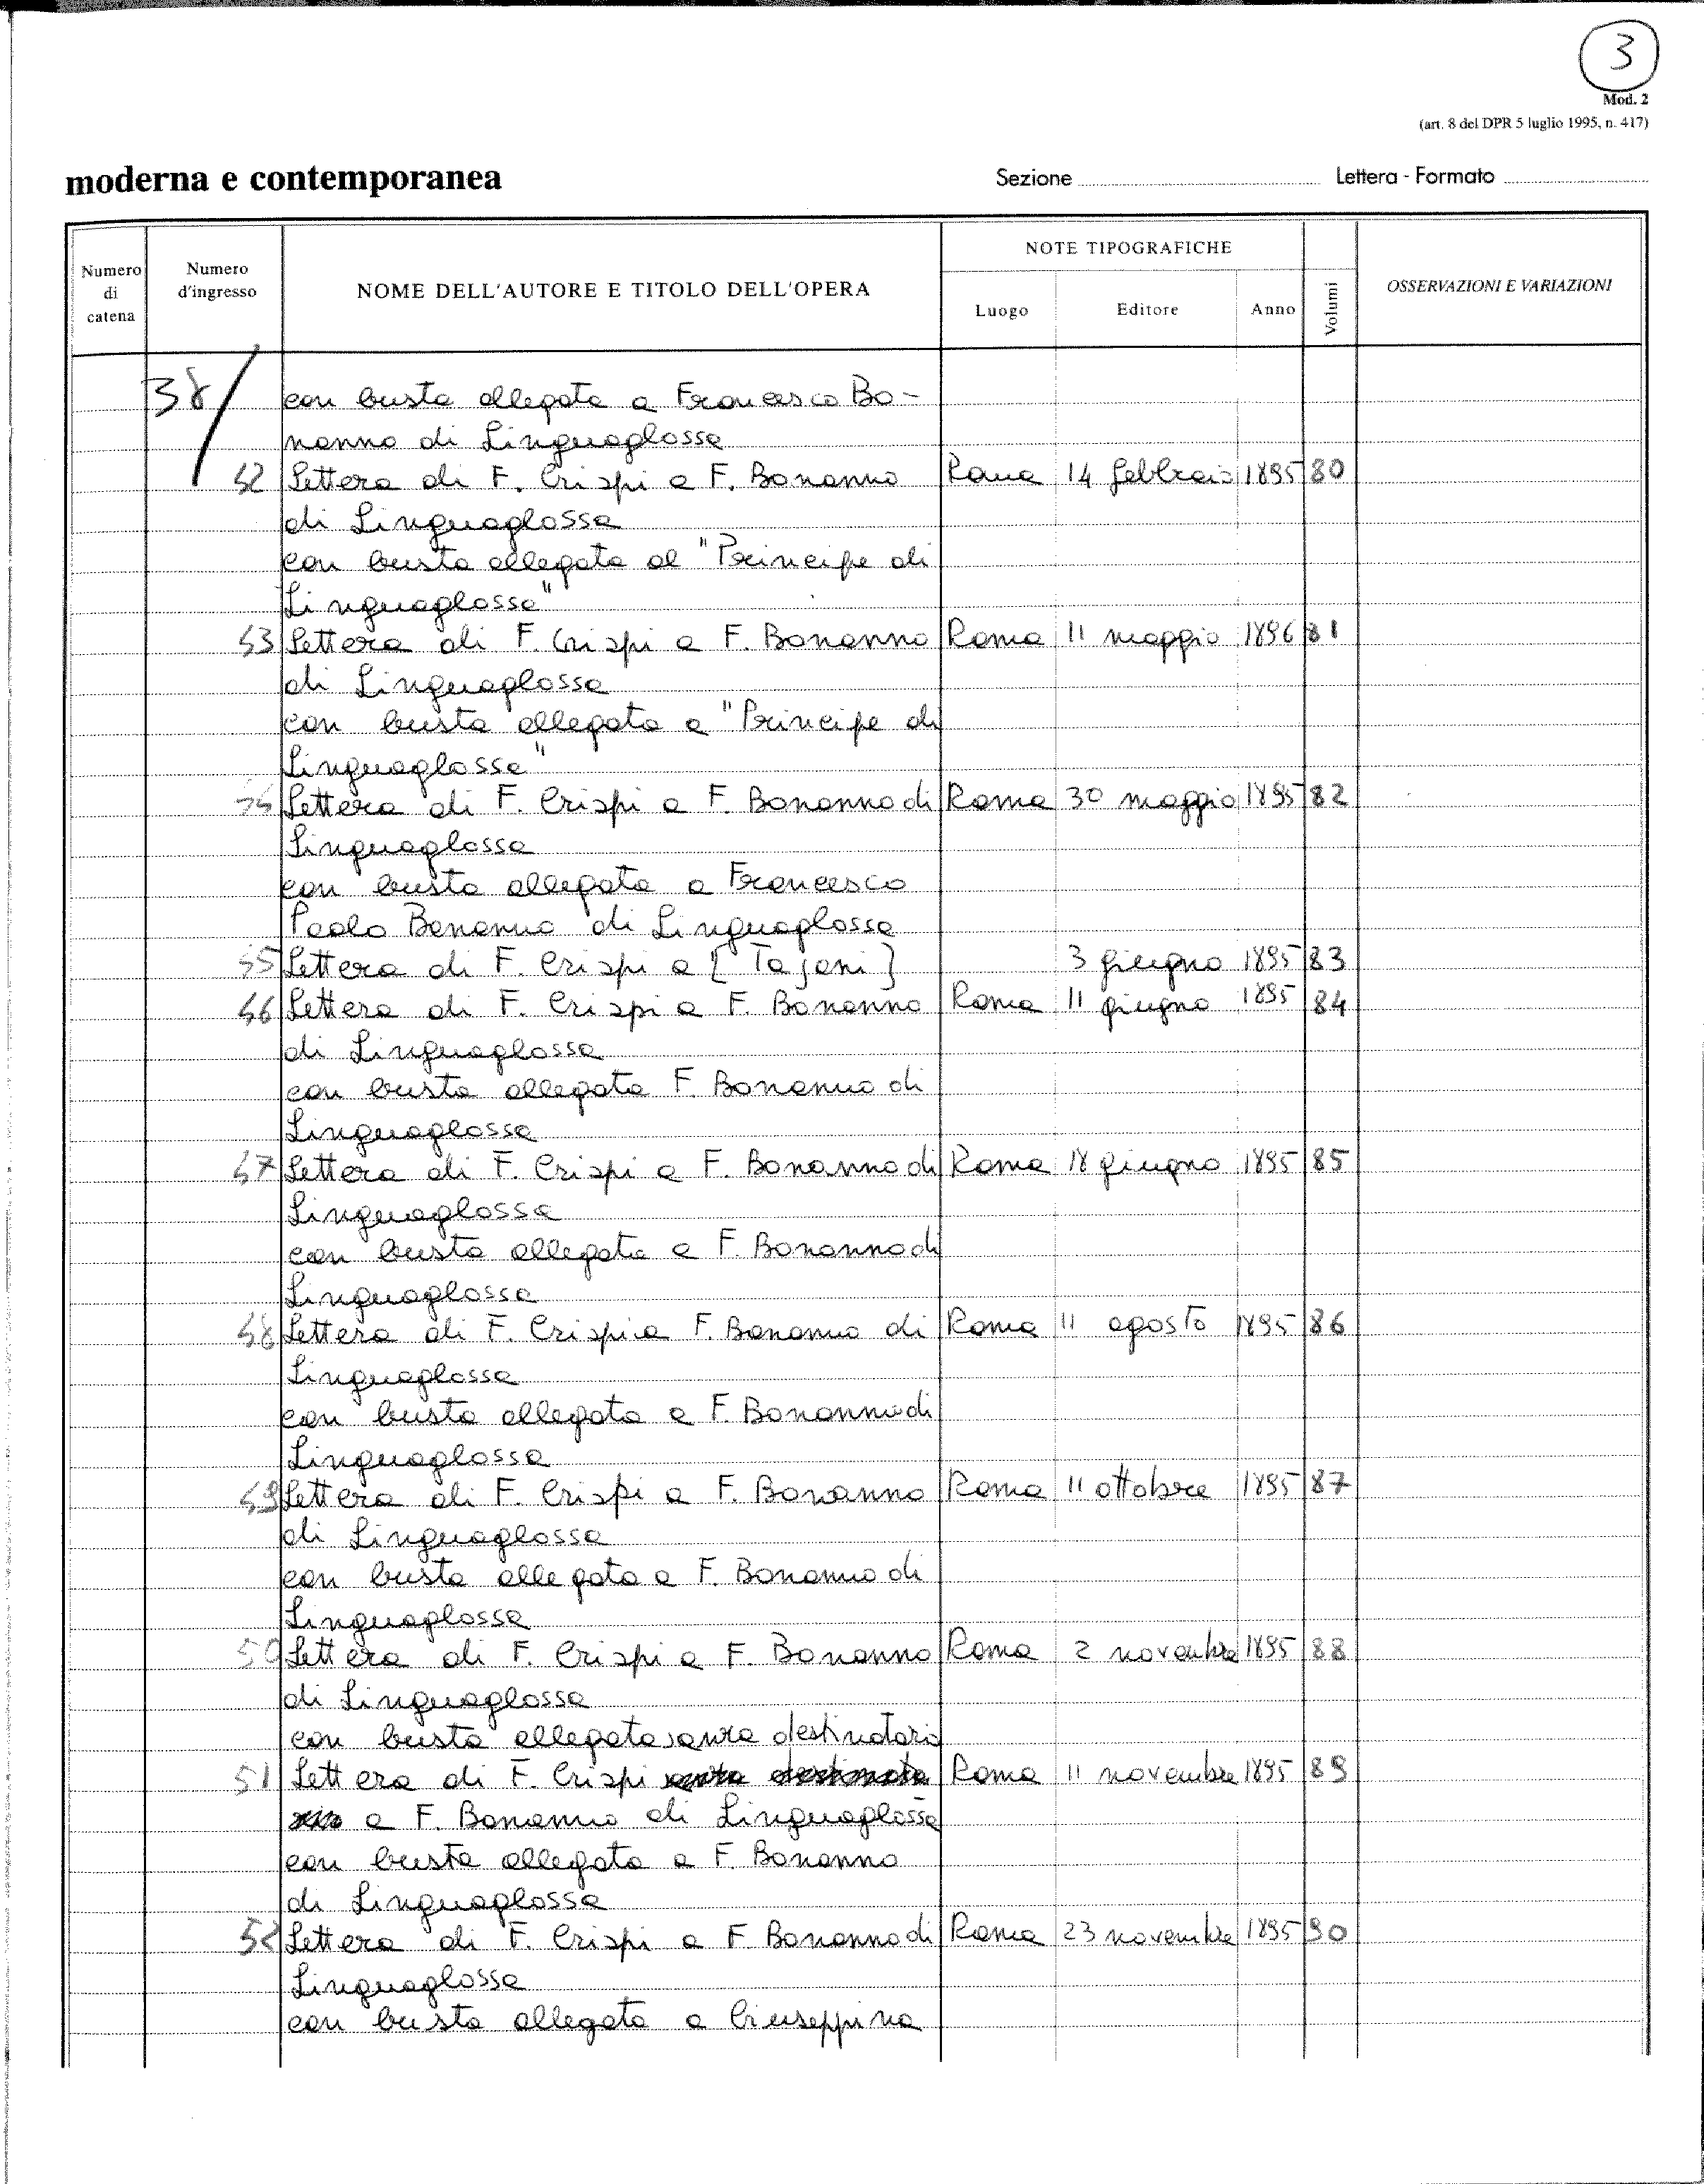 3
Mod. 2
(art. 8 del DPR 5 luglio 1995, n. 417)
moderna e contemporanea Sezione Lettera - Formato
Numero di catena Numero d'ingresso NOME DELL'AUTORE E TITOLO DELL'OPERA NOTE TIPOGRAFICHE Luogo Editore Anno Volumi OSSERVAZIONI E VARIAZIONI
38/ con busta allegata a Francesco Bo-
nanno di Linguaglossa
42 Lettera di F. Crispi a F. Bonanno Roma 14 febbraio 1895 80
di Linguaglossa
con busta allegata al "Principe di
Linguaglossa"
43 Lettera di F. Crispi a F. Bonanno Roma 11 maggio 1896 81
di Linguaglossa
con busta allegata a "Principe di
Linguaglossa"
Lettera di F. Crispi a F. Bonanno di Roma 30 maggio 1895 82
Linguaglossa
con busta allegata a Francesco
Paolo Bonanno di Linguaglossa
Lettera di F. Crispi a [Tajani] 3 giugno 1895 83
46 Lettera di F. Crispi a F. Bonanno Roma 11 giugno 1895 84
di Linguaglossa
con busta allegata F. Bonanno di
Linguaglossa
47 Lettera di F. Crispi a F. Bonanno di Roma 18 giugno 1895 85
Linguaglossa
con busta allegata a F. Bonanno di
Linguaglossa
48 Lettera di F. Crispi a F. Bonanno di Roma 11 agosto 1895 86
Linguaglossa
con busta allegata a F. Bonanno di
Linguaglossa
49 Lettera di F. Crispi a F. Bonanno Roma 11 ottobre 1895 87
di Linguaglossa
con busta allegata a F. Bonanno di
Linguaglossa
50 Lettera di F. Crispi a F. Bonanno Roma 2 novembre 1895 88
di Linguaglossa
con busta allegata senza destinatario
51 Lettera di F. Crispi senza destinata Roma 11 novembre 1895 89
rio a F. Bonanno di Linguaglossa
con busta allegata a F. Bonanno
di Linguaglossa
52 Lettera di F. Crispi a F. Bonanno di Roma 23 novembre 1895 90
Linguaglossa
con busta allegata a Giuseppina